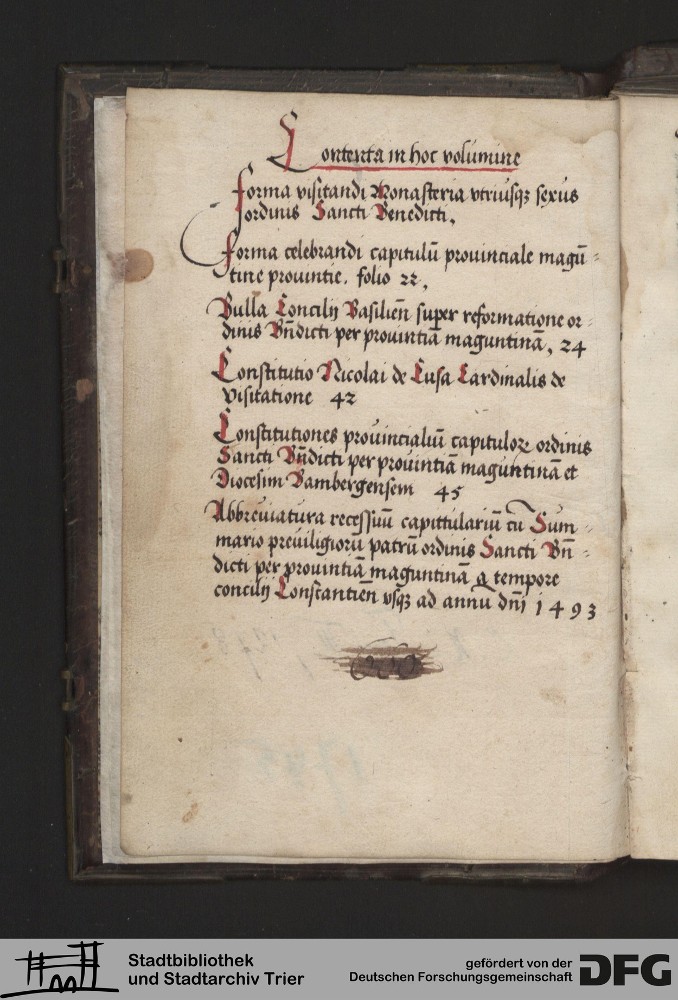 Contenta in hoc volumine
Forma visitandi Monasteria vtriusqꝫ sexus
ordinis Sancti Benedicti.
Forma celebrandi capitulū prouinciale magū-
tine prouintie. folio 22.
Bulla Concilij Basilień super reformatione or-
dinis Bn̄dicti per prouintiā maguntinā. 24
Constitutio Nicolai de Cusa Cardinalis de
visitatione 42
Constitutiones prouincialiū capituloꝝ ordinis
Sancti Bn̄dicti per prouintiā maguntinā et
Diocesim Bambergensem 45
Abbreuiatura recessuū capittulariū cū Sum-
mario preuiligiorū patrū ordinis Sancti Bn̄-
dicti per prouintiā maguntinā a tempore
concilij Constantień vsqꝫ ad annū dn̄i 1493
Stadtbibliothek
und Stadtarchiv Trier
gefördert von der
Deutschen Forschungsgemeinschaft
DFG